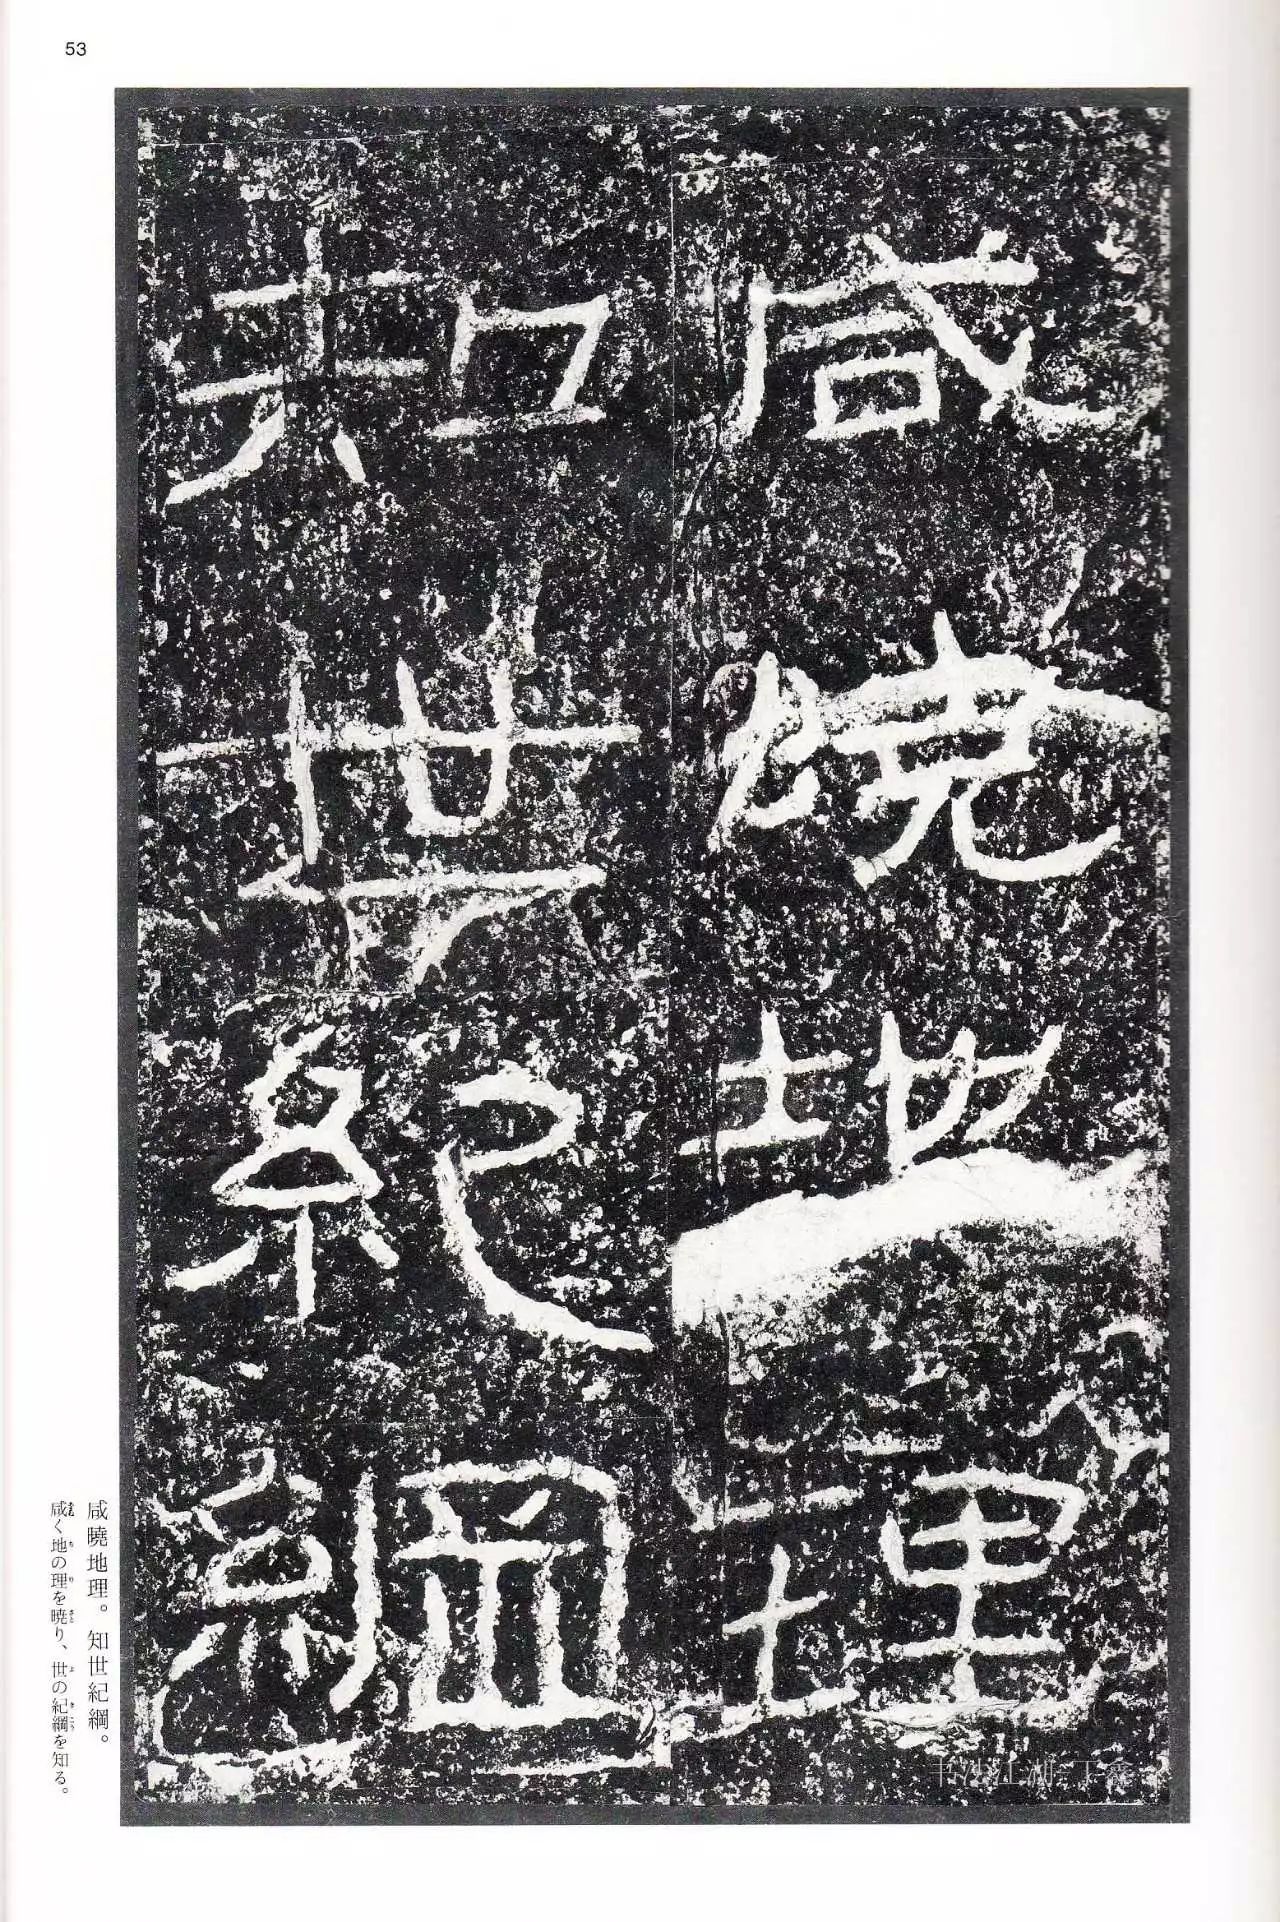 53
咸曉地理
知世紀綱
咸曉地理。知世紀綱。
咸く地の理を暁り、世の紀綱を知る。